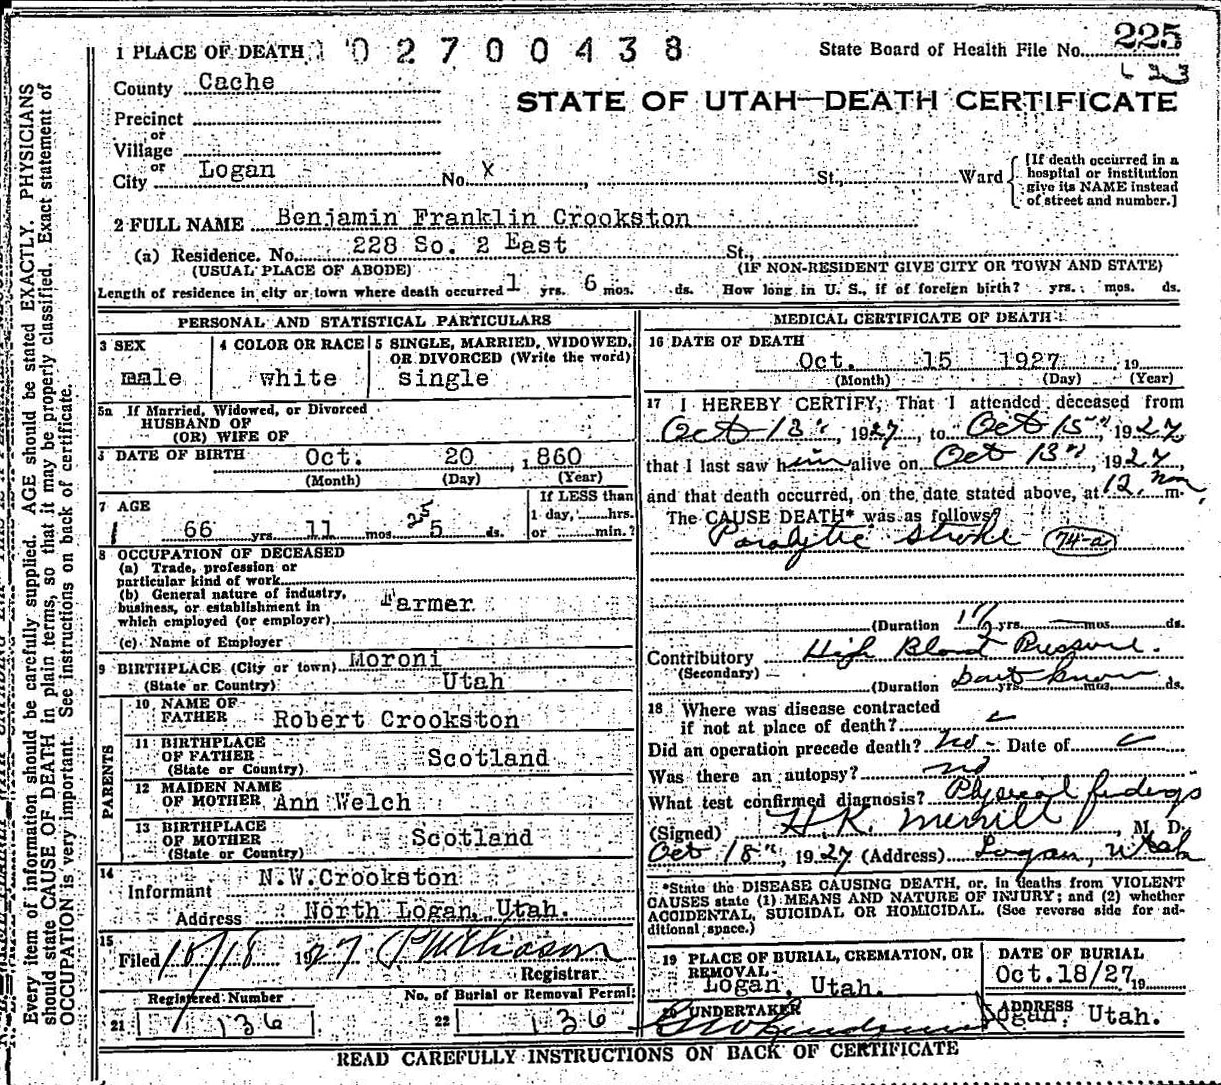 1 PLACE OF DEATH 02700438 State Board of Health File No. 225
County Cache
STATE OF UTAH—DEATH CERTIFICATE
Precinct
or
Village
or
City Logan No. X St., Ward [If death occurred in a hospital or institution give its NAME instead of street and number.]
2 FULL NAME Benjamin Franklin Crookston
(a) Residence. No. 228 So. 2 East St.,
(USUAL PLACE OF ABODE) (IF NON-RESIDENT GIVE CITY OR TOWN AND STATE)
Length of residence in city or town where death occurred 1 yrs. 6 mos. ds. How long in U. S., if of foreign birth? yrs. mos. ds.
PERSONAL AND STATISTICAL PARTICULARS
3 SEX
male
4 COLOR OR RACE
white
5 SINGLE, MARRIED, WIDOWED, OR DIVORCED (Write the word)
single
5a If Married, Widowed, or Divorced
HUSBAND OF
(OR) WIFE OF
DATE OF BIRTH Oct. 20, 1860
(Month) (Day) (Year)
7 AGE
66 yrs. 11 mos. 25 5 ds.
If LESS than
1 day, hrs.
or min.?
8 OCCUPATION OF DECEASED
(a) Trade, profession or
particular kind of work
(b) General nature of industry,
business, or establishment in
which employed (or employer) Farmer
(c) Name of Employer
9 BIRTHPLACE (City or town) Moroni
(State or Country) Utah
PARENTS
10 NAME OF
FATHER Robert Crookston
11 BIRTHPLACE
OF FATHER Scotland
(State or Country)
12 MAIDEN NAME
OF MOTHER Ann Welch
13 BIRTHPLACE
OF MOTHER Scotland
(State or Country)
14
Informant N.W.Crookston
Address North Logan, Utah.
15
Filed 10/18 1927
Registrar
Registered Number
21 136
No. of Burial or Removal Permit
22 136
MEDICAL CERTIFICATE OF DEATH
16 DATE OF DEATH
Oct. 15 1927, 19
(Month) (Day) (Year)
17 I HEREBY CERTIFY, That I attended deceased from
Oct 13", 1927, to Oct 15", 1927,
that I last saw him alive on Oct 13", 1927,
and that death occurred, on the date stated above, at 12 noon m.
The CAUSE DEATH* was as follows?
Paralytic Stroke 74-a
(Duration 1 1/2 yrs. mos. ds.
Contributory High Blood Pressure.
(Secondary)
(Duration don't know yrs. mos. ds.
18 Where was disease contracted
if not at place of death?
Did an operation precede death? No - Date of
Was there an autopsy? no
What test confirmed diagnosis? Physical findings
(Signed) H.K. Merrill, M. D.
Oct 18", 1927 (Address) Logan, Utah
*State the DISEASE CAUSING DEATH, or, in deaths from VIOLENT
CAUSES state (1) MEANS AND NATURE OF INJURY; and (2) whether
ACCIDENTAL, SUICIDAL OR HOMICIDAL. (See reverse side for ad-
ditional space.)
19 PLACE OF BURIAL, CREMATION, OR
REMOVAL
Logan, Utah.
DATE OF BURIAL
Oct.18/27, 19
UNDERTAKER
ADDRESS
Logan, Utah.
READ CAREFULLY INSTRUCTIONS ON BACK OF CERTIFICATE
Every item of information should be carefully supplied. AGE should be stated EXACTLY. PHYSICIANS
should state CAUSE OF DEATH in plain terms, so that it may be properly classified. Exact statement of
OCCUPATION is very important. See instructions on back of certificate.